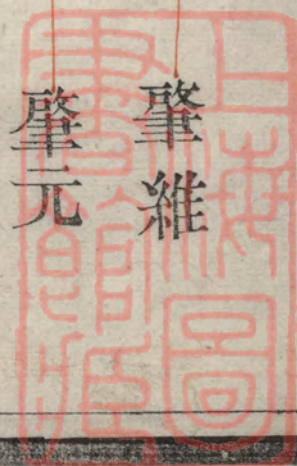 肇維
肇元
上海圖
書館藏